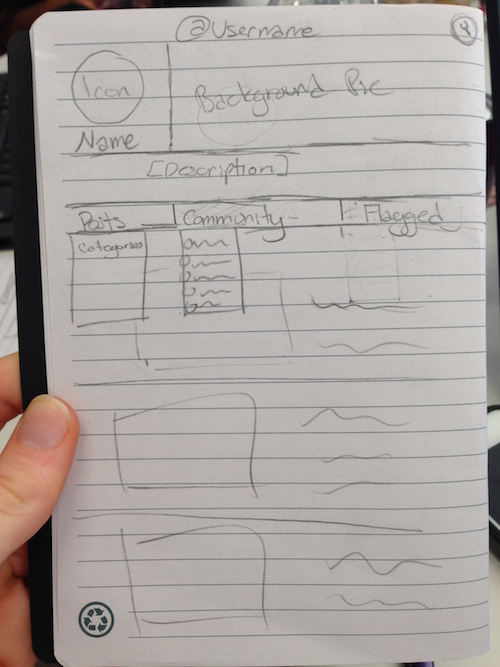 @Username
Icon
Background Pic
Name
[Description]
Posts Community Flagged
Categories